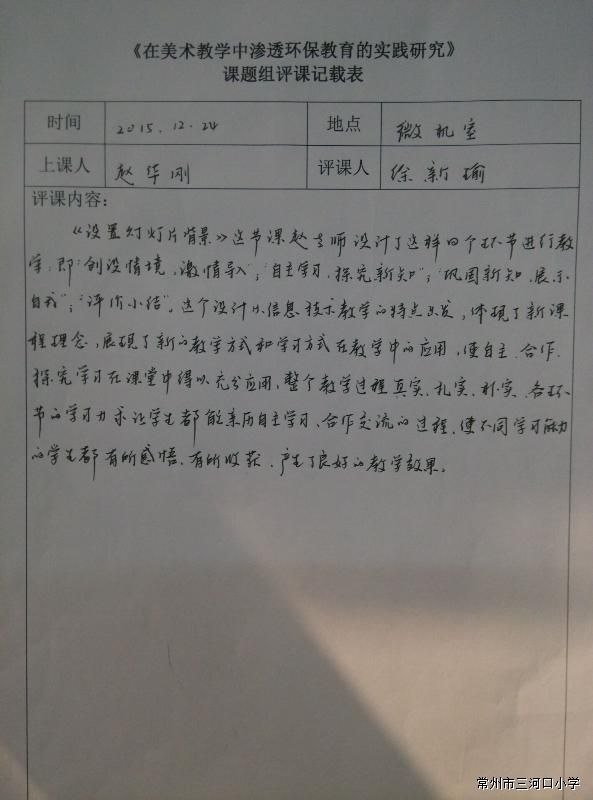 《在美术教学中渗透环保教育的实践研究》
课题组评课记载表
时间 2015.12.24 地点 微机室
上课人 赵华刚 评课人 徐新瑜
评课内容：
《设置幻灯片背景》这节课赵老师设计了这样四个环节进行教
学，即“创设情境，激情导入”；“自主学习，探究新知”；“巩固新知，展示
自我”；“评价小结”。这个设计从信息技术教学的特点出发，体现了新课
程理念，展现了新的教学方式和学习方式在教学中的应用，使自主、合作、
探究学习在课堂中得以充分应用，整个教学过程真实、扎实、朴实。各环
节的学习力求让学生都能亲历自主学习、合作交流的过程，使不同学习能力
的学生都有所感悟、有所收获，产生了良好的教学效果。
常州市三河口小学